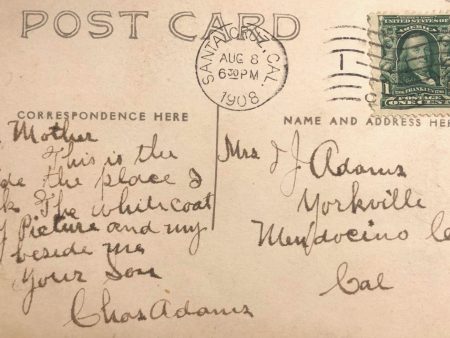 POST CARD
SANTA CRUZ, CAL.
AUG 8
6 30 PM
1908
1
UNITED STATES OF AMERICA
FRANKLIN
POSTAGE
ONE CENT
CORRESPONDENCE HERE
NAME AND ADDRESS HE
Mother
This is the
de the place I
k The whitcoat
Picture and my
beside me
Your Son
Chas Adams
Mrs J Adams
Yorkville
Mendocino Co
Cal